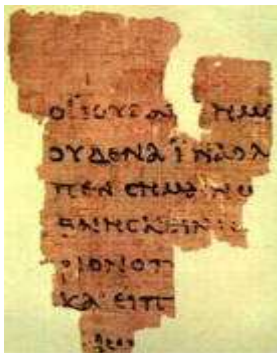 ΟΙ ΙΟΥΔΑΙ ΗΜΙ
ΟΥΔΕΝΑ ΙΝΑ Ο Λ
ΠΕΝ CΗΜΑΙΝΩ
ΘΝΗCΚΕΙΝ ΙC
ΡΙΟΝ Ο Π
ΚΑΙ ΕΙΠ